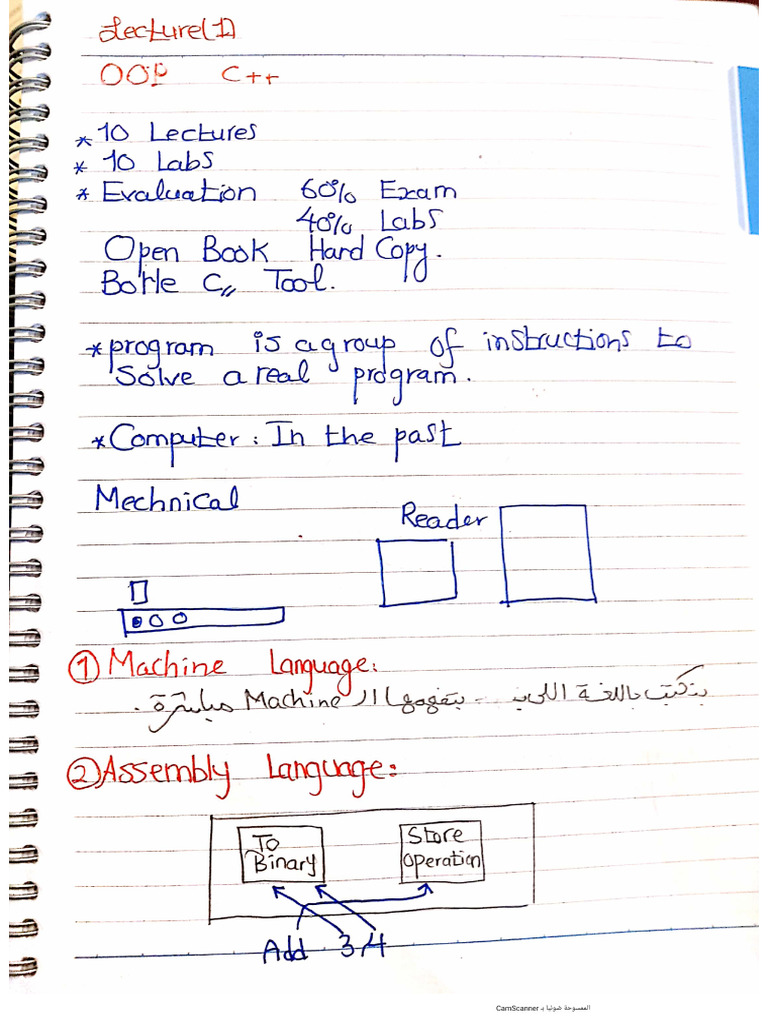 Lecture(1)
OOP C++
* 10 Lectures
* 10 Labs
* Evaluation 60% Exam
40% Labs
Open Book Hard Copy.
C Tool.
* program is a group of instructions to
Solve a real program.
* Computer: In the past
Mechnical
Reader
① Machine Language:
بتكتب باللغة اللي بـ - بتفهمها الـ Machine مباشرة.
② Assembly Language:
To
Binary
Store
Operation
Add 3,4
الممسوحة ضوئيا بـ CamScanner